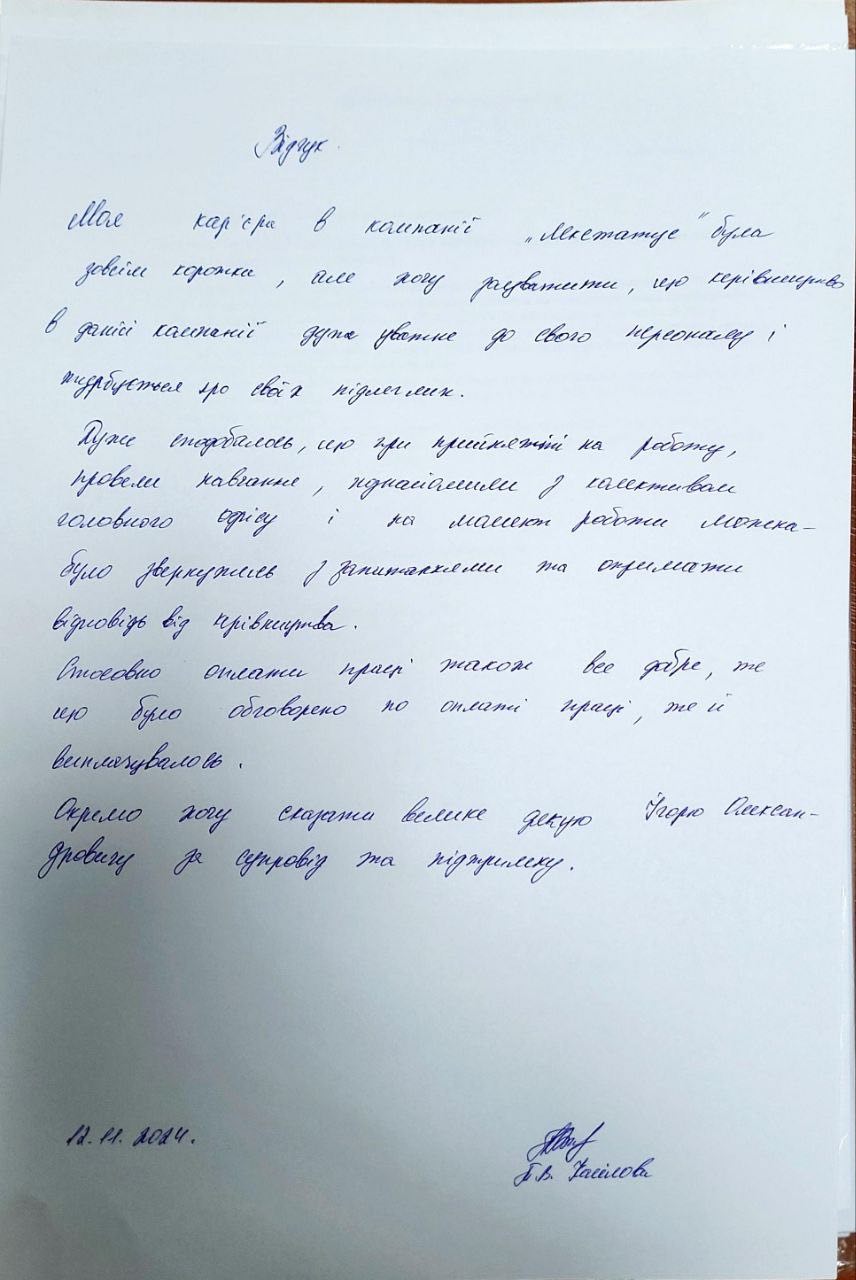 Відгук
Моя кар'єра в компанії „ " була
зовсім коротка, але хочу зауважити, що керівництво
в даній компанії дуже уважне до свого персоналу і
турбується про своїх підлеглих.
Дуже сподобалось, що при прийнятті на роботу,
провели навчання, познайомили з колективом
головного офісу і на момент роботи можна-
було звернутись з запитаннями та отримати
відповідь від керівництва.
Стосовно оплати праці також все добре, те
що було обговорено по оплаті праці, те й
виплачувалось.
Окремо хочу сказати велике дякую Ігорю Олексан-
дровичу за супровід та підтримку.
12.11.2024.
В.